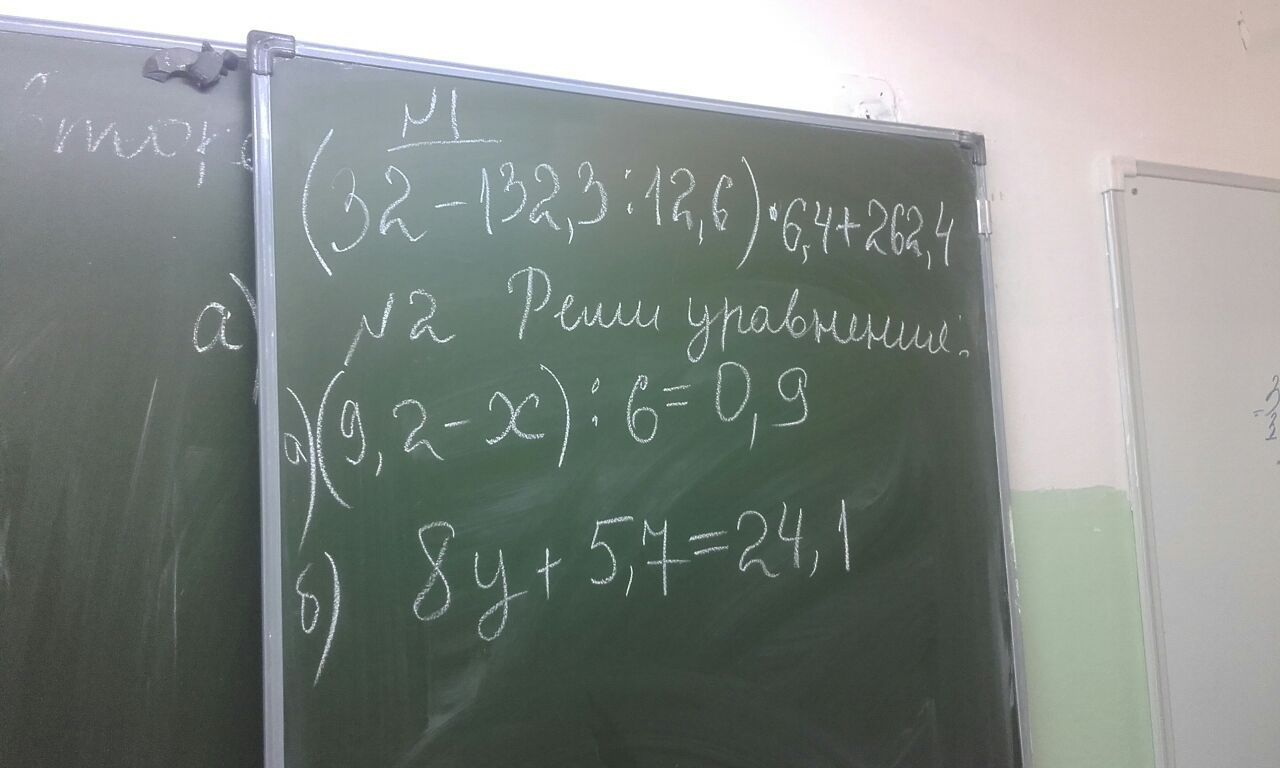 №1
(32-132,3:12,6)·6,4+262,4
№2 Реши уравнения:
а)(9,2-x):6=0,9
б) 8y+5,7=24,1
а)